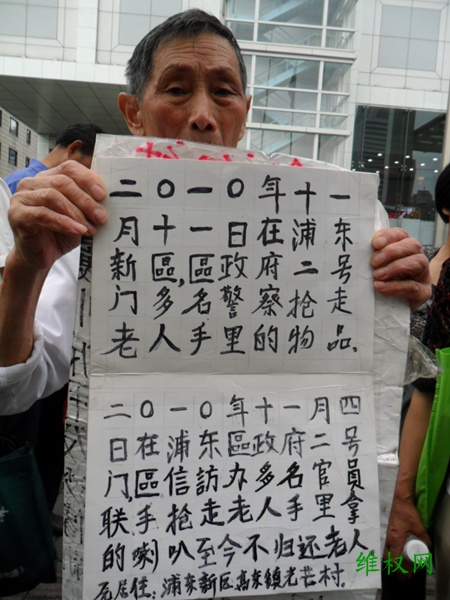 二〇一〇年十一
月十一日在浦东
新區,區政府二号
门多名警察抢走
老人手里的物品.
二〇一〇年十一月四
日在浦东區政府二号
门,區信訪办多名官員
联手抢走老人手里拿
的喇叭至今不归还老人
居住:浦东新区高东镇光芒村.
维权网